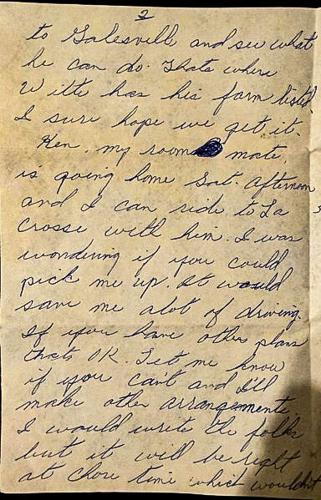 2
to Galesville and see what
he can do. Thats where
Witte has his farm listed.
I sure hope we get it.
Ken, my room mate,
is going home Sat. afternoon
and I can ride to La
Crosse with him. I was
wondering if you could
pick me up. It would
save me alot of driving.
If you have other plans
thats OK. Let me know
if you can't and I'll
make other arrangements.
I would write the folks
but it will be right
at chore time which wouldn't